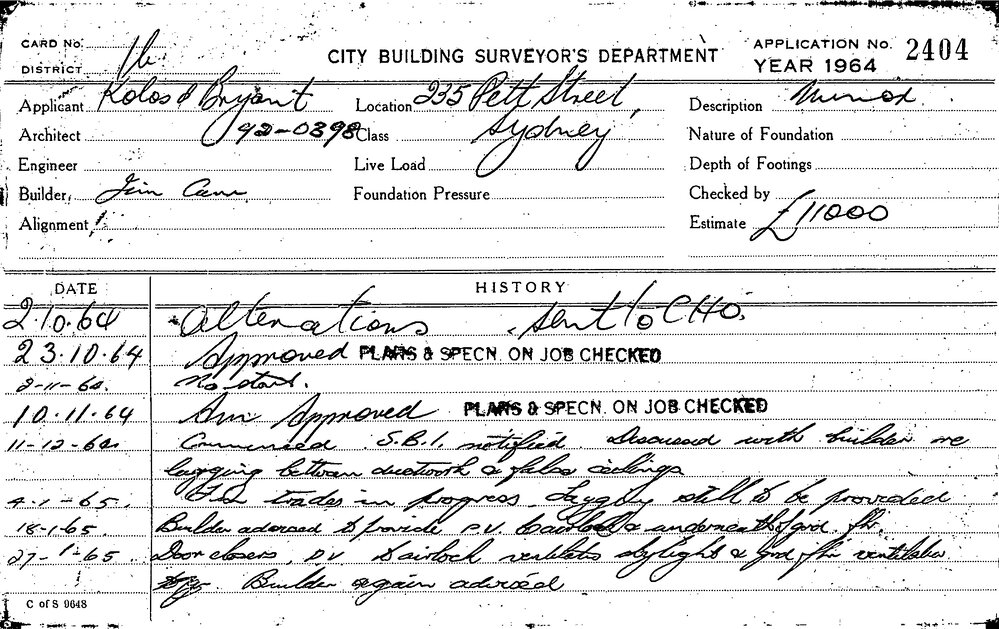 CARD No. 16
CITY BUILDING SURVEYOR'S DEPARTMENT
APPLICATION No. 2404
DISTRICT
YEAR 1964
Applicant Kolos & Bryant
Location 235 Pitt Street,
Description Minor
Architect 92-0398
Class Sydney
Nature of Foundation
Engineer
Live Load
Depth of Footings
Builder, Jim Carr
Foundation Pressure
Checked by
Alignment
Estimate £11000
DATE HISTORY
2.10.64 Alterations sent to CHO.
23.10.64 Approved PLANS & SPECN. ON JOB CHECKED
2-11-64. No start.
10.11.64 Am Approved PLANS & SPECN. ON JOB CHECKED
11-12-64 Commenced S.B.I. notified. Discussed with builder re
lagging between ductwork & false ceilings
4-1-65. trades in progress. Lagging still to be provided
18-1-65. Builder advised to provide P.V. to airlock & underneath grd. flr.
27-1-65. Door closers, P.V. to airlock ventilation skylight & grd. flr ventilation
Builder again advised
C of S 9648